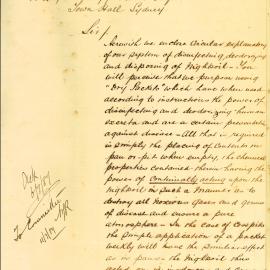 Town Hall Sydney
Sir/
Herewith we enclose Circular explanatory
of our system of disinfecting deodorizing
and disposing of Nightsoil. You
will perceive that we propose using
"Dry Packets" which have when used
according to instructions the power of
disinfecting and deodorizing human
excreta and are a certain preventative
against disease. All that is required
is simply the placing of contents in
pan or pit when empty, the chemical
properties contained therein having the
power of continually acting upon the
Nightsoil in such a manner as to
destroy all noxious gases and germs
of disease and ensure a pure
atmosphere. In the case of Cesspits
the simple application of a packet
weekly will have the same effect
as in pans, the Nightsoil thus